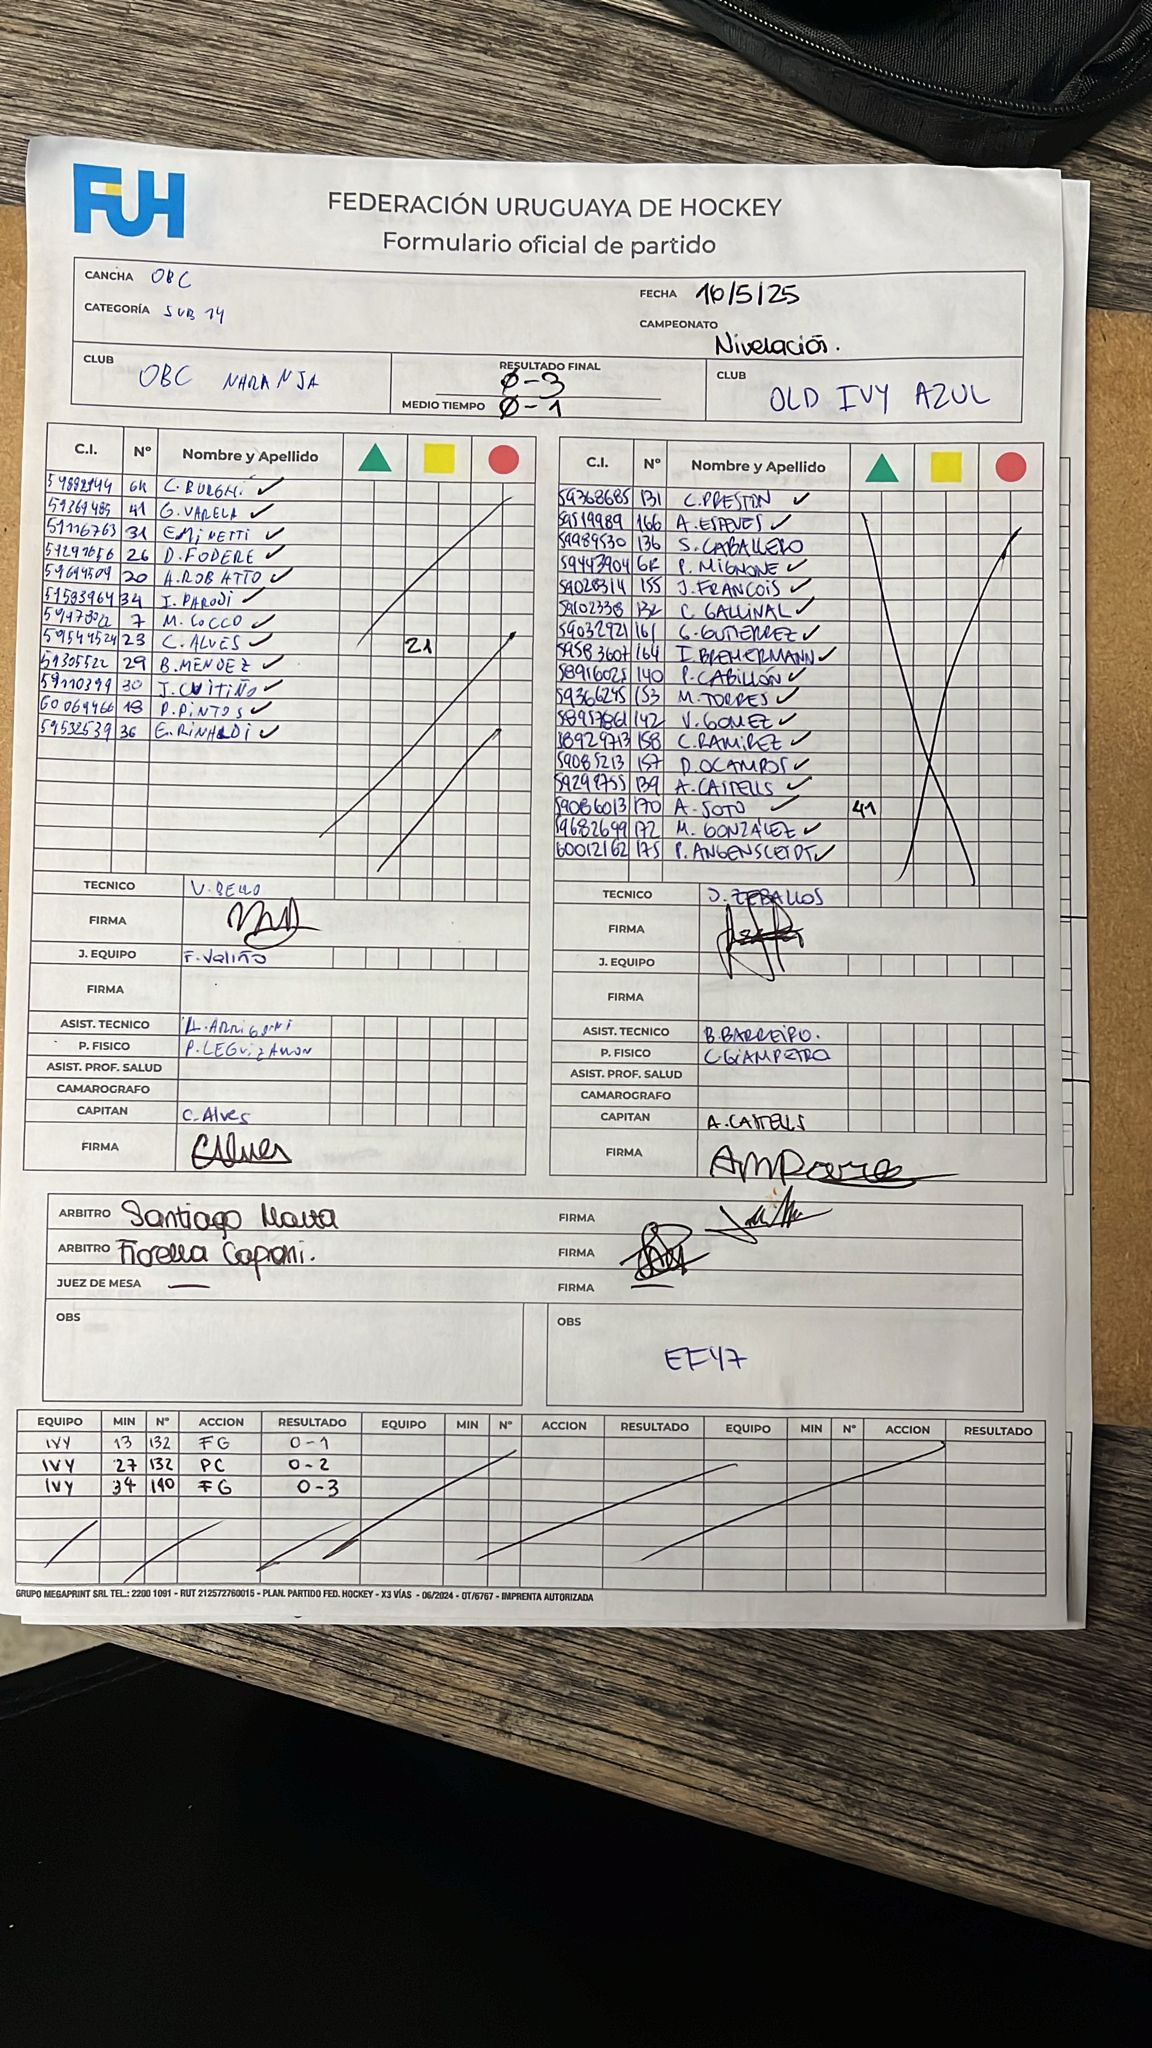 FUH
FEDERACIÓN URUGUAYA DE HOCKEY
Formulario oficial de partido
CANCHA OBC
FECHA 10/5/25
CATEGORÍA SUB 14
CAMPEONATO Nivelación.
CLUB OBC NARANJA
RESULTADO FINAL Ø-3
MEDIO TIEMPO Ø-1
CLUB OLD IVY AZUL
C.I. Nº Nombre y Apellido
GK C. BURGHI. ✓
41 G. VARELA ✓
59116763 31 E MINETTI ✓
26 D. FODERE ✓
20 A. ROBATTO ✓
51583964 34 I. PARODI ✓
7 M. COCCO ✓
59544524 23 C. ALVES ✓ 21
59305522 29 B. MENDEZ ✓
59110399 30 J. CUITIÑO ✓
60069466 18 P. PINTOS ✓
59532539 36 E. RINALDI ✓
TECNICO V. BELLO
FIRMA
J. EQUIPO F. Valiño
FIRMA
ASIST. TECNICO A. ARRIGONI
P. FISICO P. LEGUIZAMON
ASIST. PROF. SALUD
CAMAROGRAFO
CAPITAN C. Alves
FIRMA CAlves
C.I. Nº Nombre y Apellido
59368685 131 C. PRESTON ✓
59519989 166 A. ESTEVES ✓
59989530 136 S. CABALLERO
59443904 GK P. MIGNONE ✓
59028314 155 J. FRANCOIS ✓
59102338 132 C. GALLINAL ✓
59032921 161 G. GUTIERREZ ✓
59583607 164 I. BREMERMANN ✓
58916025 140 P. CABILLÓN ✓
59366245 153 M. TORRES ✓
58957861 142 V. GOMEZ ✓
58929713 158 C. RAMIREZ ✓
59085213 157 D. OCAMPOS ✓
59299755 139 A. CASTELLS ✓
59086013 170 A. SOTO ✓ 41
59682699 172 M. GONZÁLEZ ✓
60012162 175 P. ANGENSCEIDT ✓
TECNICO J. ZEBALLOS
FIRMA
J. EQUIPO
FIRMA
ASIST. TECNICO B. BARREIRO.
P. FISICO C. GIAMPETRO
ASIST. PROF. SALUD
CAMAROGRAFO
CAPITAN A. CASTELLS
FIRMA
ARBITRO Santiago FIRMA
ARBITRO Fiorella Caproni. FIRMA
JUEZ DE MESA — FIRMA —
OBS
OBS
EF47
EQUIPO MIN Nº ACCION RESULTADO EQUIPO MIN Nº ACCION RESULTADO EQUIPO MIN Nº ACCION RESULTADO
IVY 13 132 FG 0-1
IVY 27 132 PC 0-2
IVY 34 140 FG 0-3
GRUPO MEGAPRINT SRL TEL.: 2200 1091 - RUT 212572760015 - PLAN. PARTIDO FED. HOCKEY - X3 VÍAS - 06/2024 - OT/6767 - IMPRENTA AUTORIZADA